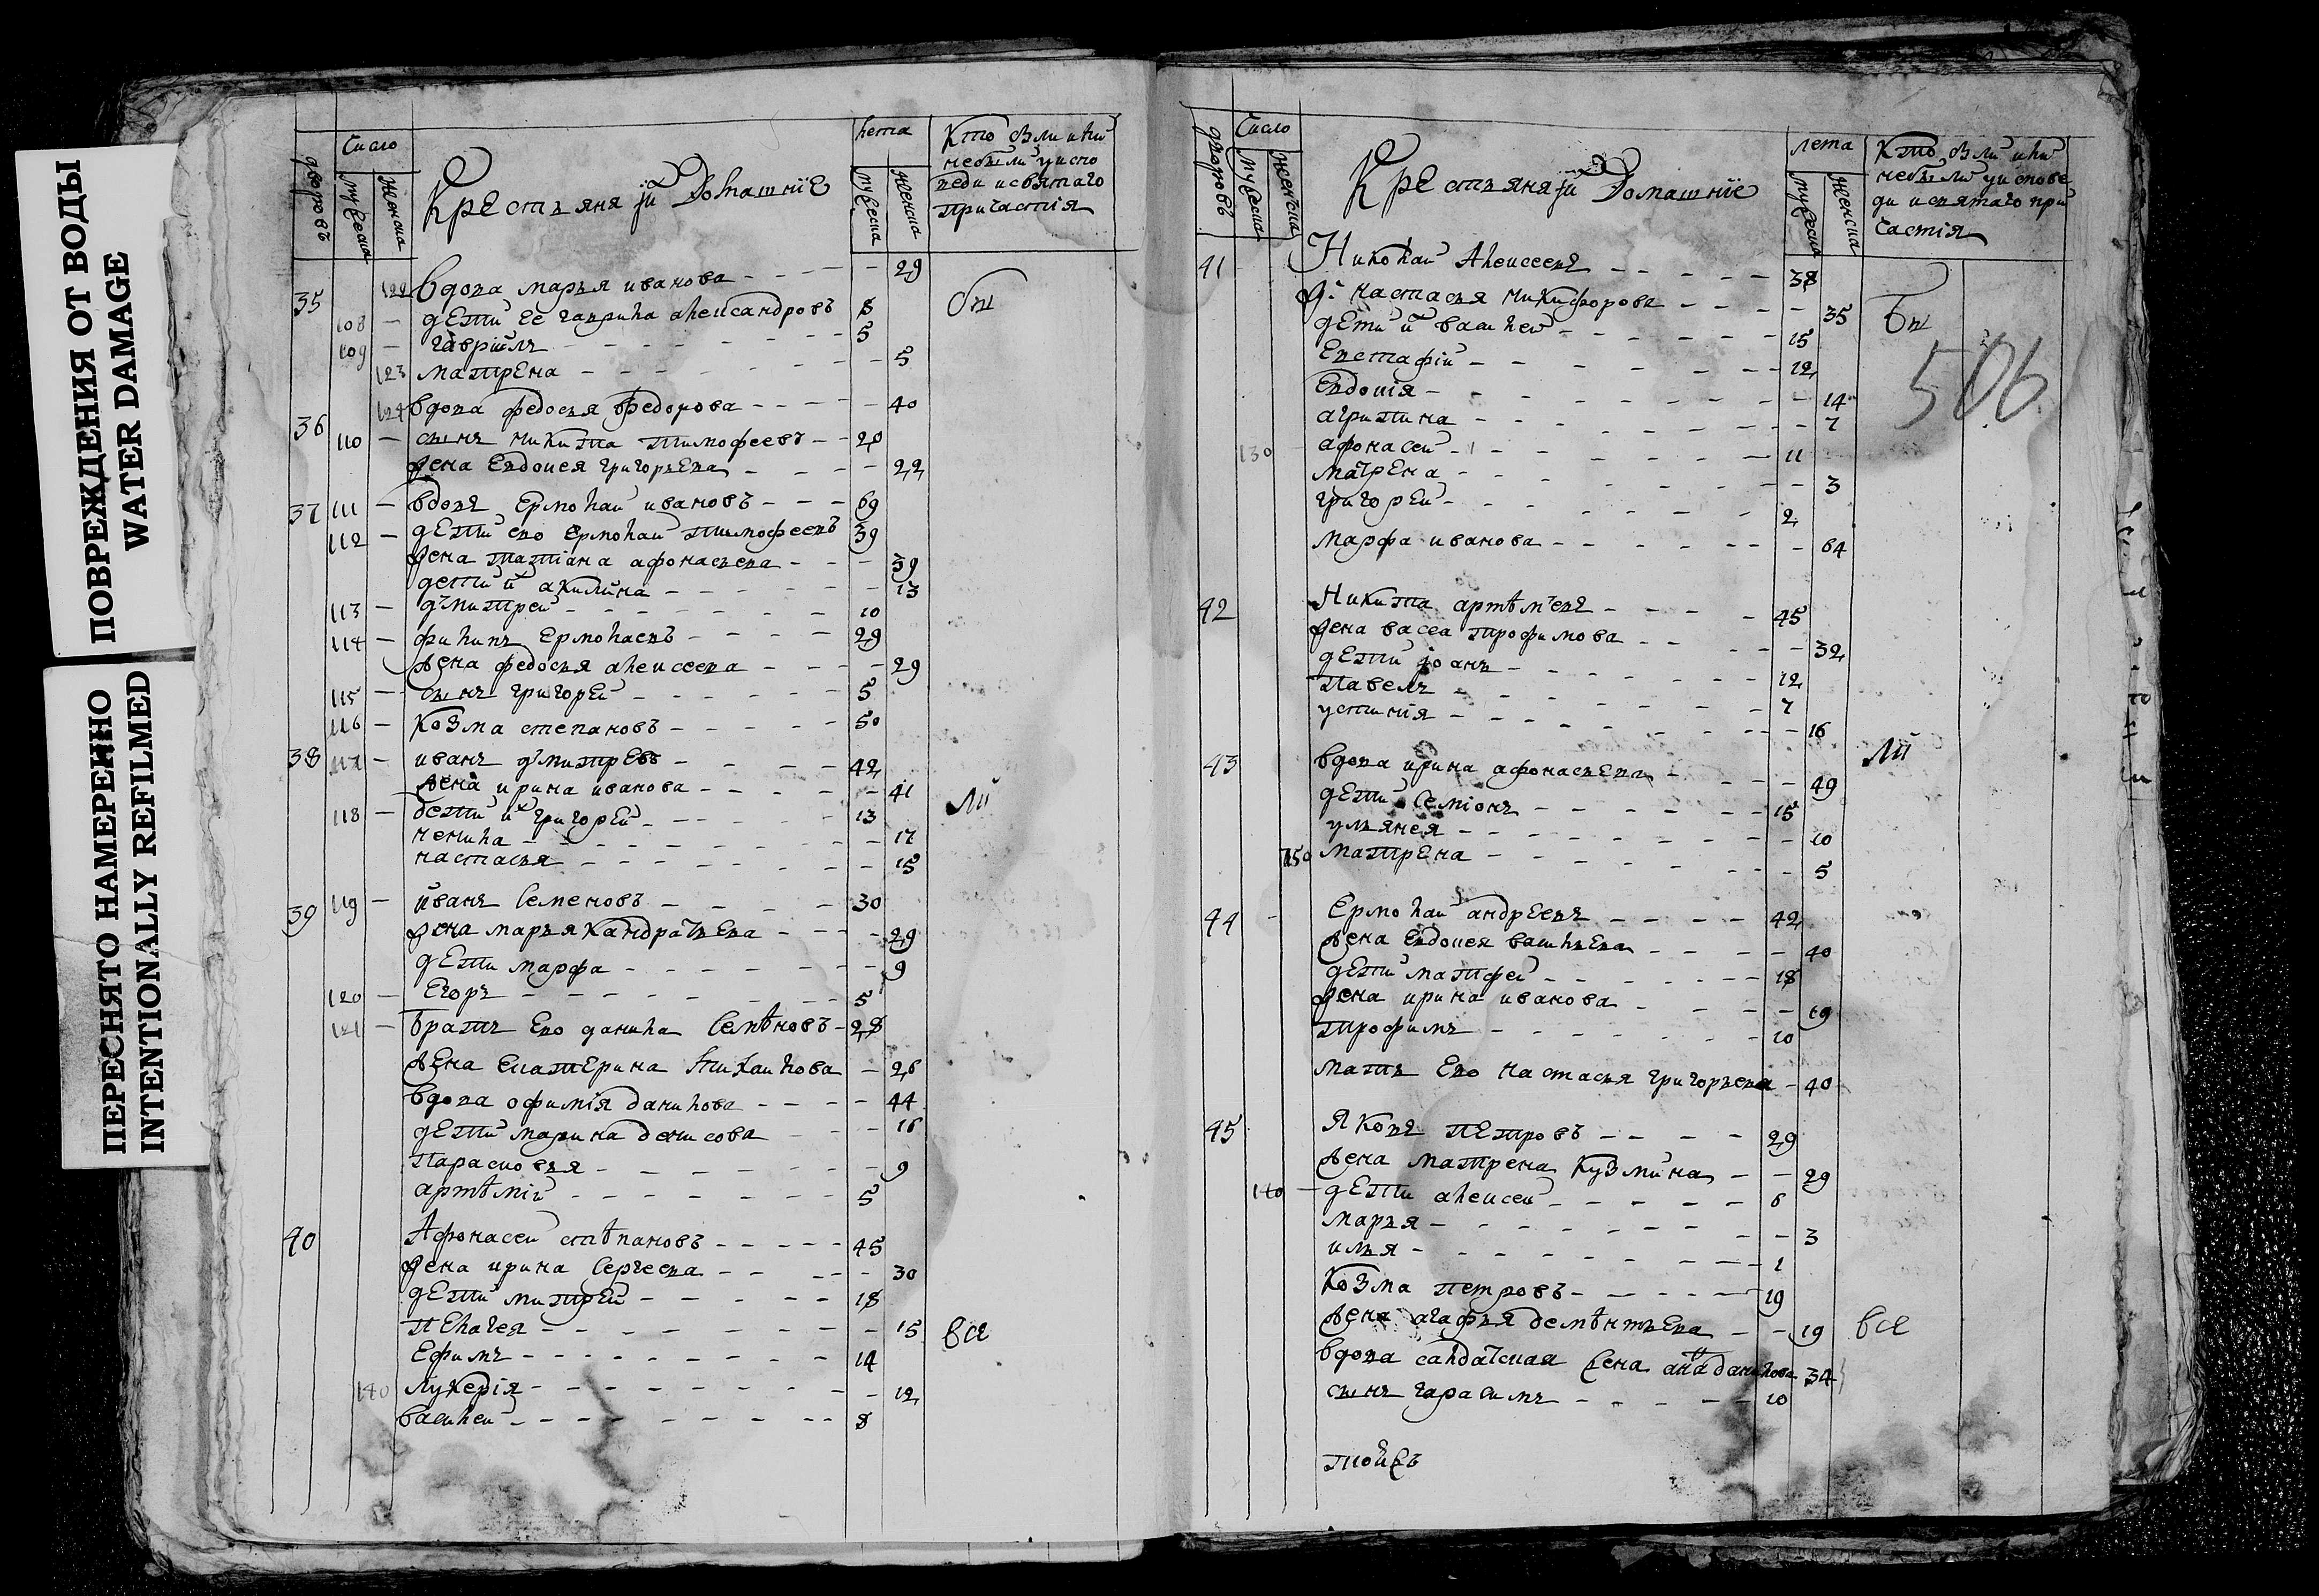 ПОВРЕЖДЕНИЯ ОТ ВОДЫ
WATER DAMAGE
ПЕРЕСНЯТО НАМЕРЕННО
INTENTIONALLY REFILMED
дворовъ
Число
мужеска
женска
Крестьяня и Домашніе
Лета
мужеска
женска
Кто были или
небыли у испо
веди и святаго
причастія
35 122 вдова марья иванова 29
108 дети ее гаврила алеѯандровъ 8 бы
109 гавріилъ 5
123 матрена 5
36 124 вдова федосья федорова 40
110 сынъ никита тимофеевъ 20
жена евдокея григорьева 22
37 111 вдовъ ермолаи ивановъ 69
112 дети ево ермолаи тимофеевъ 39
жена татіана афонасьева 39
дети их акилина 13
113 дмитреи 10
114 филипъ ермолаевъ 29
жена федосья алексеева 29
115 сынъ григореи 5
116 козма степановъ 50
38 117 иванъ дмитревъ 42
жена ирина иванова 41
118 дети их григореи 13 ли
ненила 17
настасья 15
39 119 иванъ семеновъ 30
жена марья кандратьева 29
дети марфа 9
120 егоръ 5
121 братъ ево данила семѣновъ 28
жена екатерина михаилова 26
вдова офимія данилова 44
дети марина денисова 16
парасковья 9
артѣміи 5
40 Афонасеи стѣпановъ 45
жена ирина сергеева 30
дети митреи 18
пелагея 15 все
ефимъ 14
140 лукерія 12
василеи 8
дворовъ
Число
мужеска
женска
Крестьяня и Домашніе
Лета
мужеска
женска
Кто были или
небыли у испове
ди и святаго при
частія
41 Николаи Алексеевъ 38
жена настасья никифорова 35 Бы
дети их василеи 15
евстафіи 12
506
евдокія 14
агрипина 7
130 афонасеи 11
матрена 3
григореи 2
марфа иванова 64
42 Никита артѣмьевъ 45
жена васса трофимова 32
дети іоанъ 12
павелъ 7
устинія 16
43 вдова ирина афонасьева 49 ли
дети семіонъ 15
ульянея 10
150 матрена 5
44 Ермолаи андреевъ 42
жена евдокея васильева 40
дети матфеи 18
жена ирина иванова 19
трофимъ 10
мать ево настасья григорьева 40
45 Яковъ петровъ 29
жена матрена кузмина 29
140 дети алексеи 6
марья 3
илья 1
козма петровъ 19
жена агафья демѣнтьева 19 все
вдова салдатская жена анна данилова 34
сынъ гарасимъ 10